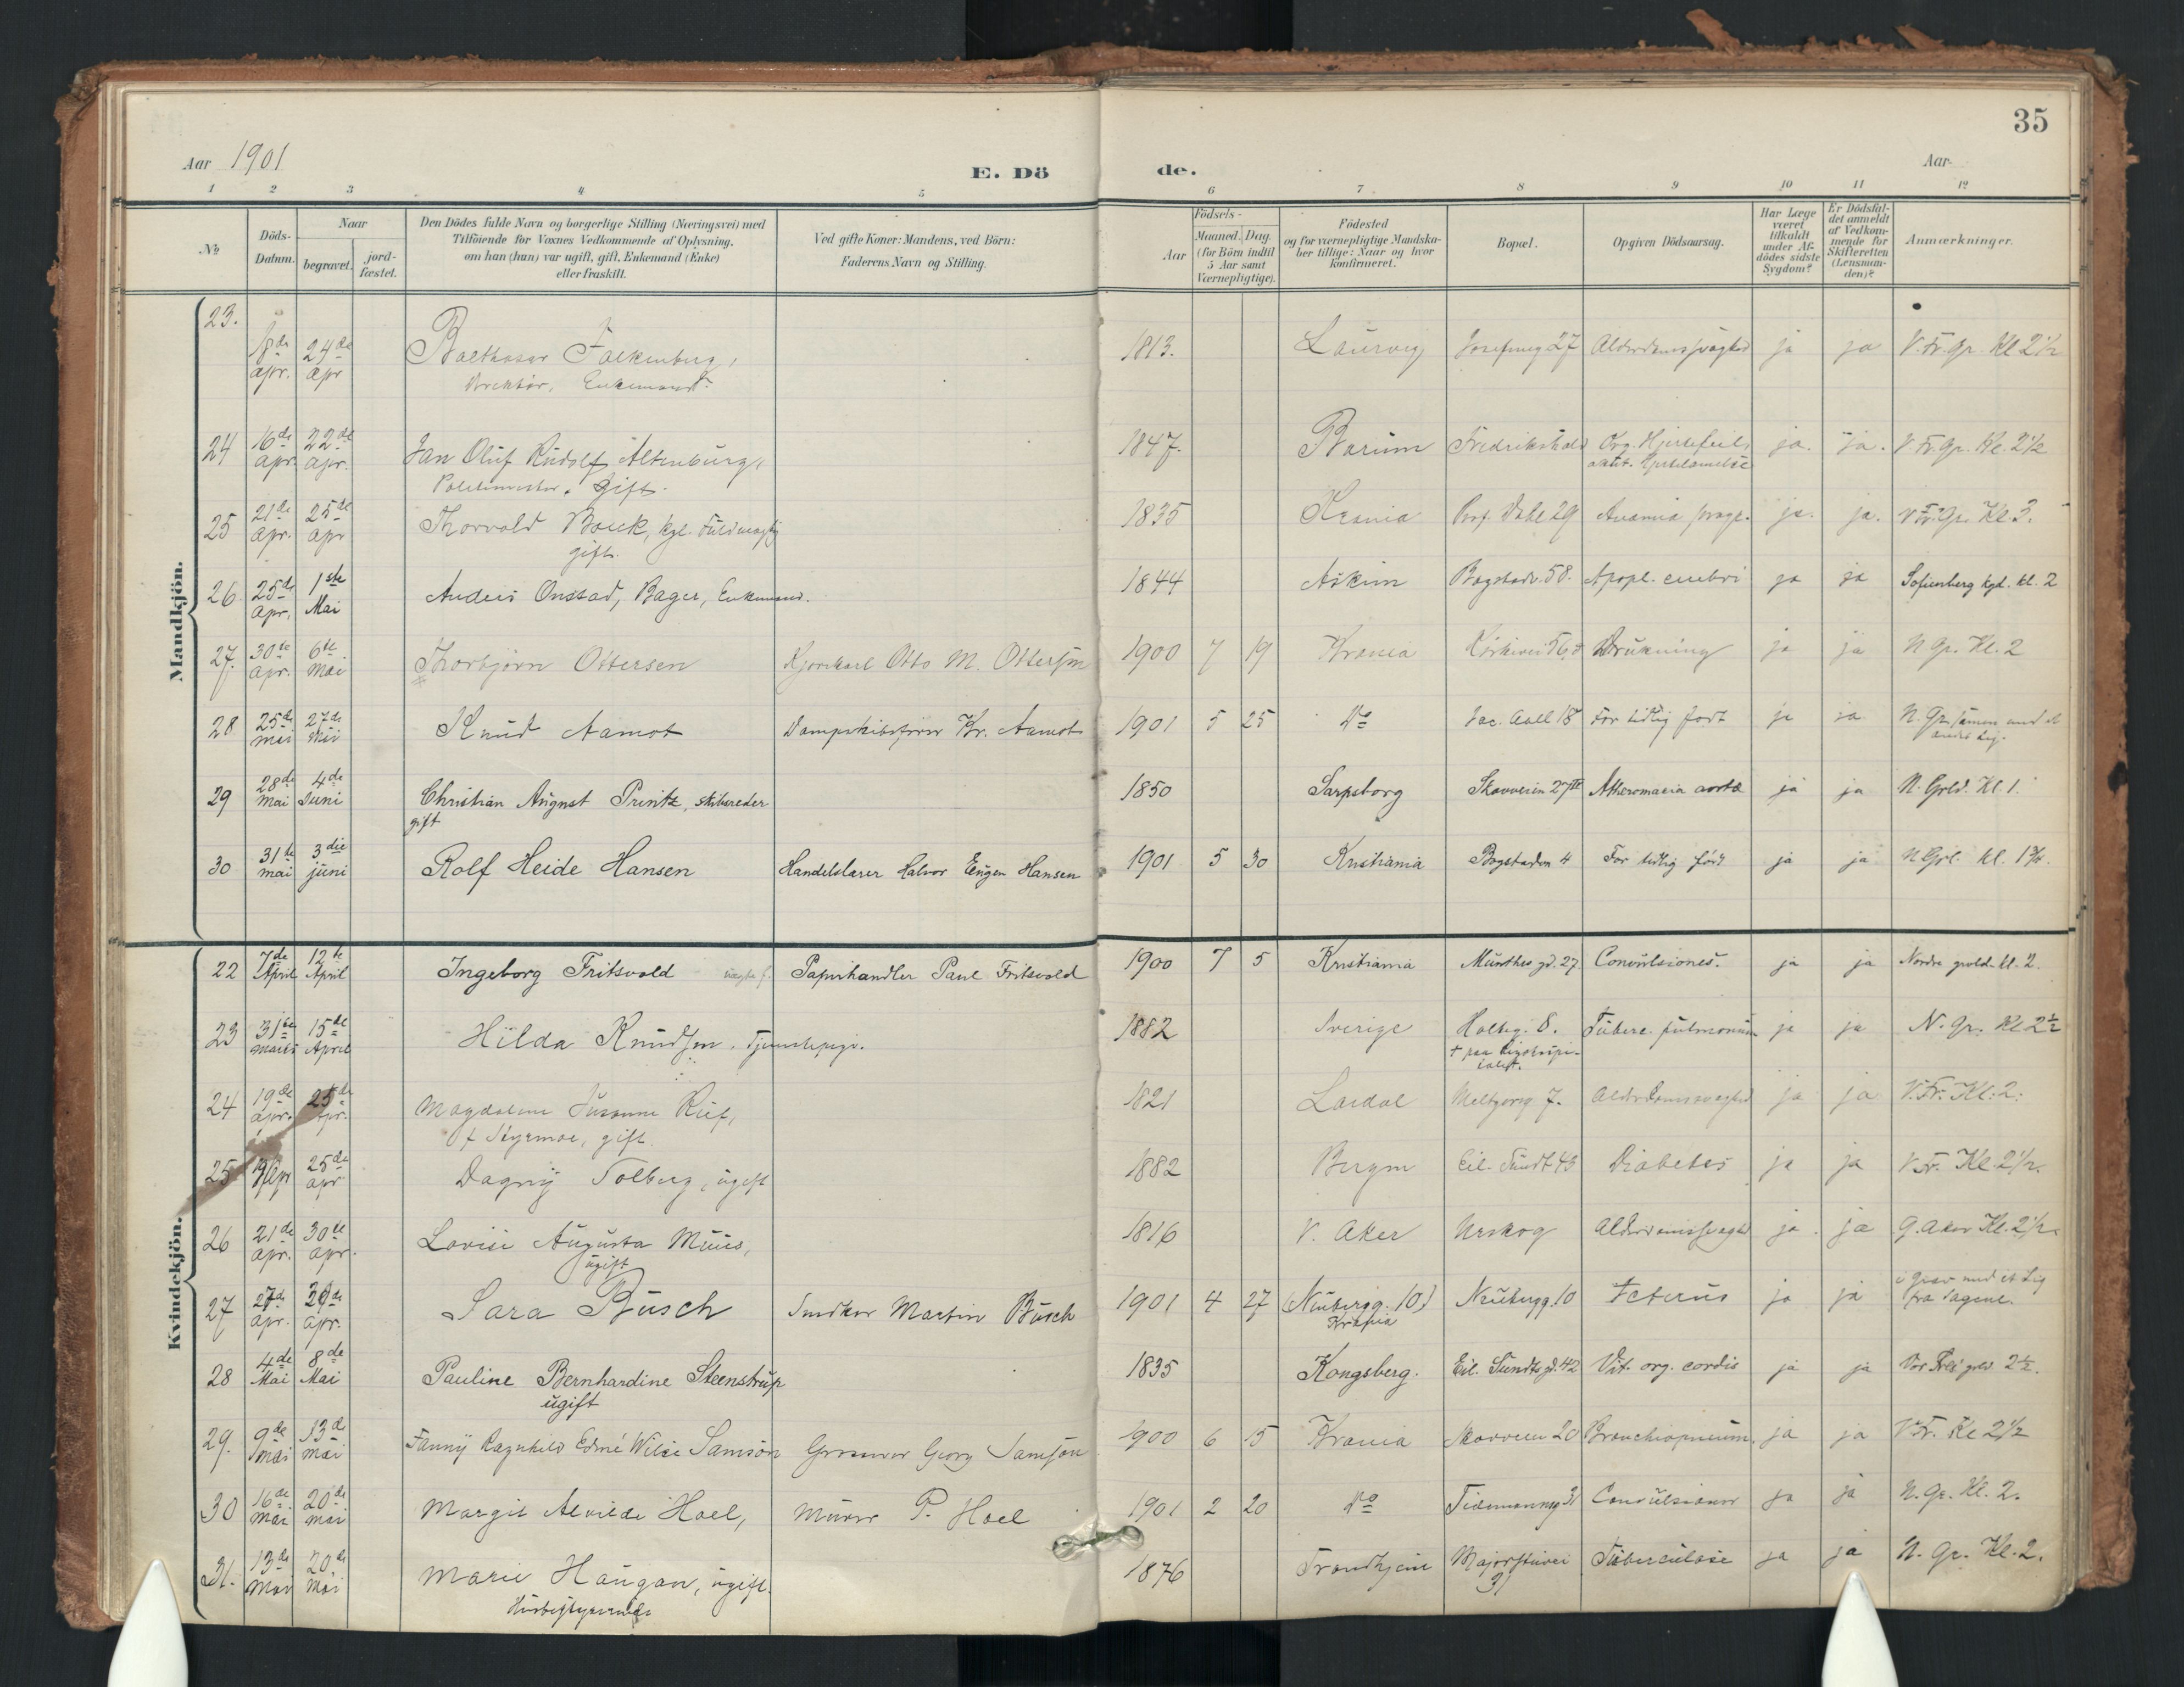 35
Aar 1901
E. Dö de.
Aar
1 2 3 4 5 6 7 8 9 10 11 12
No
Döds-Datum.
Naar
begravet.
jord-fæstet.
Den Dödes fulde Navn og borgerlige Stilling (Næringsvei) med
Tilföiende for Voxnes Vedkommende af Oplysning,
om han (hun) var ugift, gift, Enkemand (Enke)
eller fraskilt.
Ved gifte Koner: Mandens, ved Börn:
Faderens Navn og Stilling.
Födsels-
Aar
Maaned. Dag.
(for Börn indtil
5 Aar samt
Værnepligtige).
Födested
og for værnepligtige Mandska-
ber tillige: Naar og hvor
konfirmeret.
Bopæl.
Opgiven Dödsaarsag.
Har Læge
været
tilkaldt
under Af-
dödes sidste
Sygdom?
Er Dödsfal-
det anmeldt
af Vedkom-
mende for
Skifteretten
(Lensman-
den)?
Anmærkninger.
Mandkjön.
23. 18de apr. 24de apr Balthasar Falkenberg, 1813. Laurvig Josefinesg 27 Alderdomssvaghed ja ja V. Fr. Gr. Kl 2 1/2
Enkemand.
24 16de apr. 22de apr. Jan Oluf Rudolf Altenburg, 1847. Bærum Fredrikshald Org. Hjertefeil, ja. ja. V Fr. Gr. Kl. 2 1/2
Politimester. gift.
25 21de apr. 25de apr Thorvald Boeck, kgl. Fuldmægtig 1835 Krania Prof. Dahl 29 Anæmia progr. ja. ja. V Fr. Gr. Kl. 3.
gift.
26 25de apr. 1ste Mai Anders Onstad, Bager, Enkemand. 1844 Askim Bogstadv. 58. Apopl. cerebri ja ja Sofienberg kgd. kl. 2
27. 30te apr. 6te Mai Thorbjörn Ottersen Kjörekarl Otto M. Ottersen 1900 7 19 Krania Kirkevei 56 Drukning ja ja N Gr. Kl. 2
28 25de mai 27de mai Knud Aamot Dampskibsförer Kr. Aamot 1901 5 25 Do Jac. Aall 18 For tidlig födt ja ja N. Gr. sammen med et
andet Lig.
29 28de mai 4de Juni Christian August Printz, skibsreder 1850 Sarpsborg Skovveien 27 Atheromasia aortæ ja ja N. Grld. Kl 1.
gift
30 31te mai 3die juni Rolf Heide Hansen Handelslærer Halvor Eugen Hansen 1901 5 30 Kristiania Bogstadvn 4 For tidlig födt ja ja N Grl. kl. 1 3/4.
Kvindekjön.
22 7de April 12te April Ingeborg Fritsvold Papirhandler Paul Fritsvold 1900 7 5 Kristiania Munthes gd. 27 Convulsiones. ja ja Nordre gravld. kl. 2.
23 31te marts 15de April Hilda Knudsen, Tjenestepige. 1882 Sverige Holteg. 8. Tuberc. pulmonum ja ja N. Gr. Kl 2 1/2
24 19de apr. 25de apr. Magdalena Susanne Rief, 1821 Lærdal Meltzersg 7. Alderdomssvaghed ja ja V. Fr. Kl. 2.
gift.
25 19/Apr 25de apr Dagny Solberg, ugift 1882 Bergen Eil. Sundt 43 Diabetes ja ja V. Fr. Kl 2 1/2.
26 21de apr. 30te apr. Lovise Augusta Muus, 1816 V. Aker Urskog Alderdomssvaghed ja ja G. Aker Kl. 2 1/2
ugift
27 27de apr. 29de apr. Sara Busch Snedker Martin Busch 1901 4 27 (Neubergg. 10) Neubergg. 10 Icterus ja ja i Grav med et Lig
Krania
28 4de Mai 8de Mai Pauline Bernhardine Steenstrup 1835 Kongsberg. Eil. Sundts gd. 42 Vit. org. cordis ja ja Vor Frels grld 2 1/2.
ugift
29. 9de Mai 13de mai Fanny Ragnhild Edmé Wilsie Samson Grosserer Georg Samson 1900 6 15 Krania Skovveien 20 Bronchiopneum. ja ja V. Fr. Kl 2 1/2
30 16de mai 20de mai Margit Alvilde Hoel, Murer P. Hoel 1901 2 20 Do Tidemandsg 31 Convulsioner ja ja N. Gr. Kl. 2.
31. 13de mai 20de mai Marie Haugan, ugift. 1876 Trondhjem Majorstuvei Tuberculose ja ja N. Gr. Kl. 2.
Husbestyrerinde
31